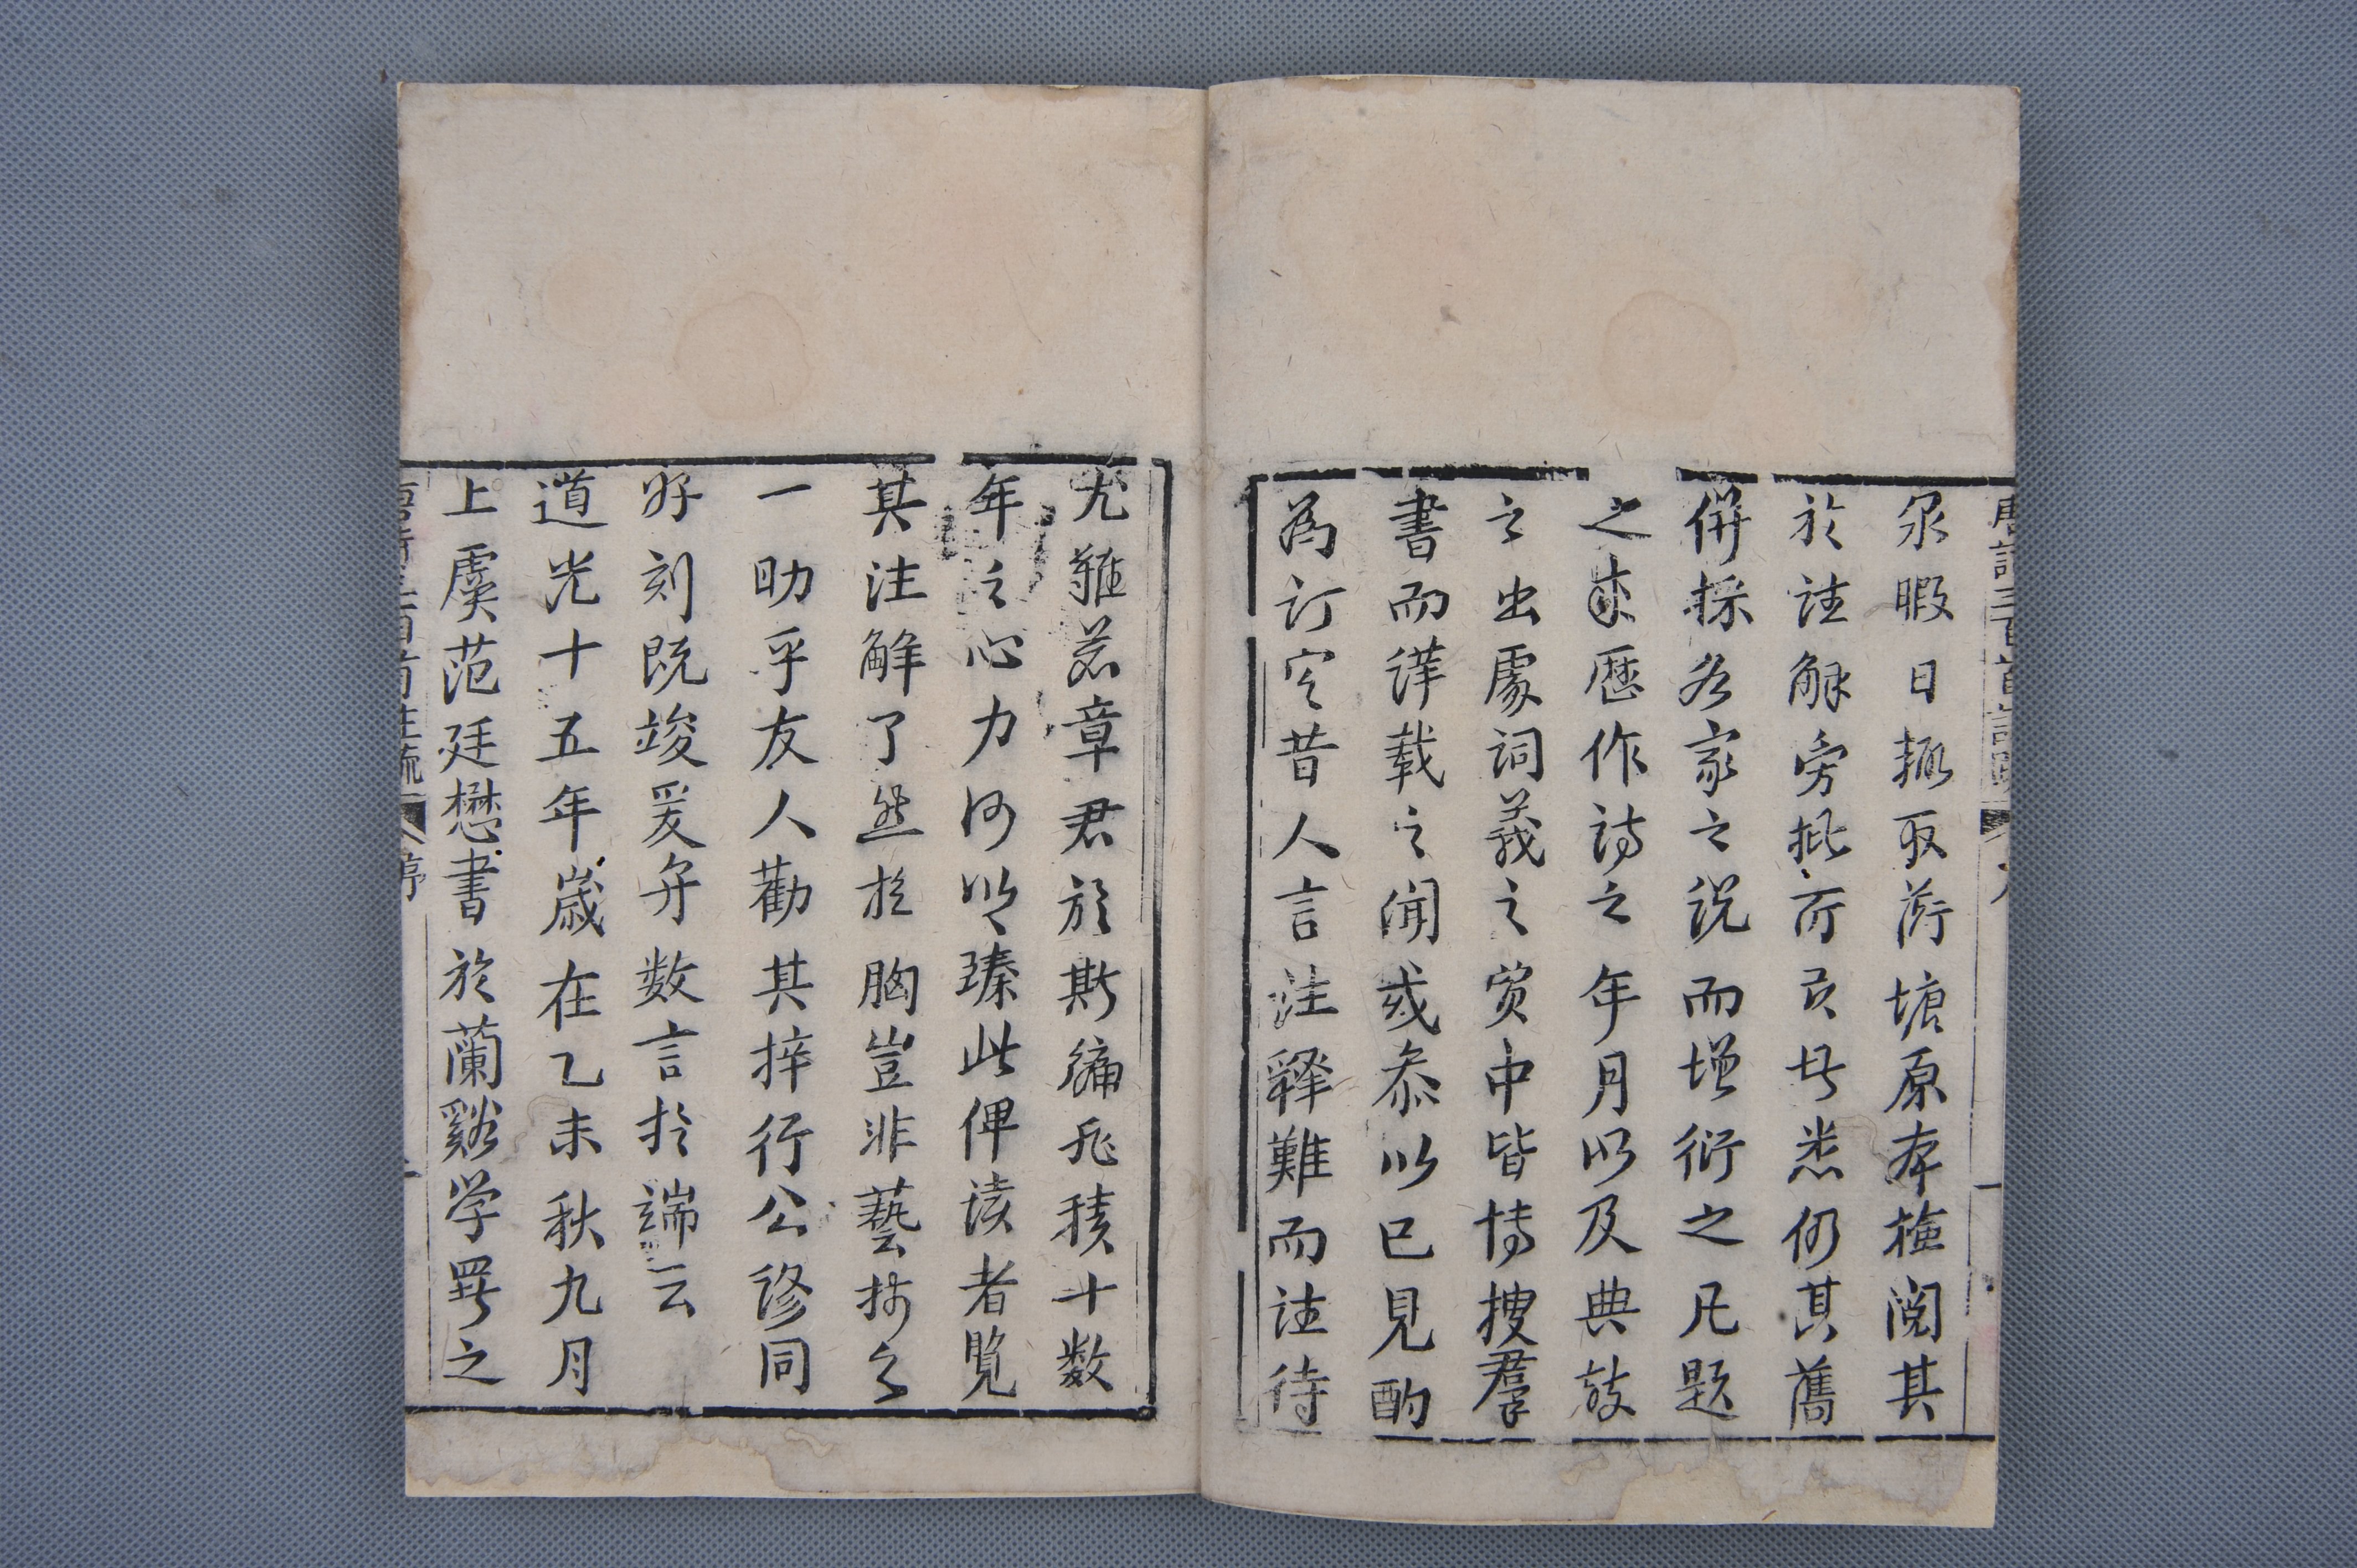 泉暇日輒取蘅塘原本檢閱其
於註解旁批所已具悉仍其舊
併採各家之說而增衍之凡題
之來歷作詩之年月以及典故
之出處詞義之實中皆博搜羣
書而詳載之閒或叅以己見酌
為訂定昔人言注釋難而註詩
尤難若章君於斯編積十數
年之心力何以臻此俾读者覽
其注解了然於胸豈非藝林之
一助乎友人勸其梓行公諸同
好刻既竣爰弁数言於端云
道光十五年歲在乙未秋九月
上虞范廷懋書於蘭谿学署之